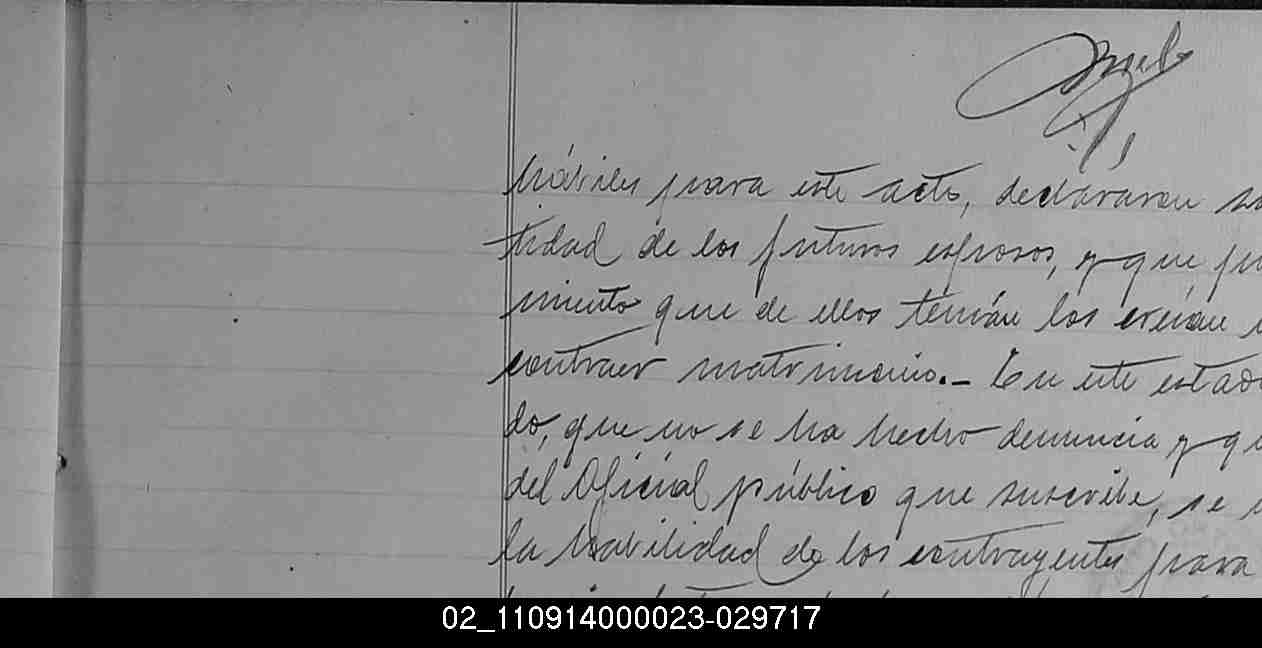 hábiles para este acto, declararon so
tidad de los futuros esposos, y que, por
miento que de ellos tenían los creían
contraer matrimonio.- En este estado
do, que no se ha hecho denuncia y qu
del Oficial público que suscribe, se
la habilidad de los contrayentes para
02_110914000023-029717